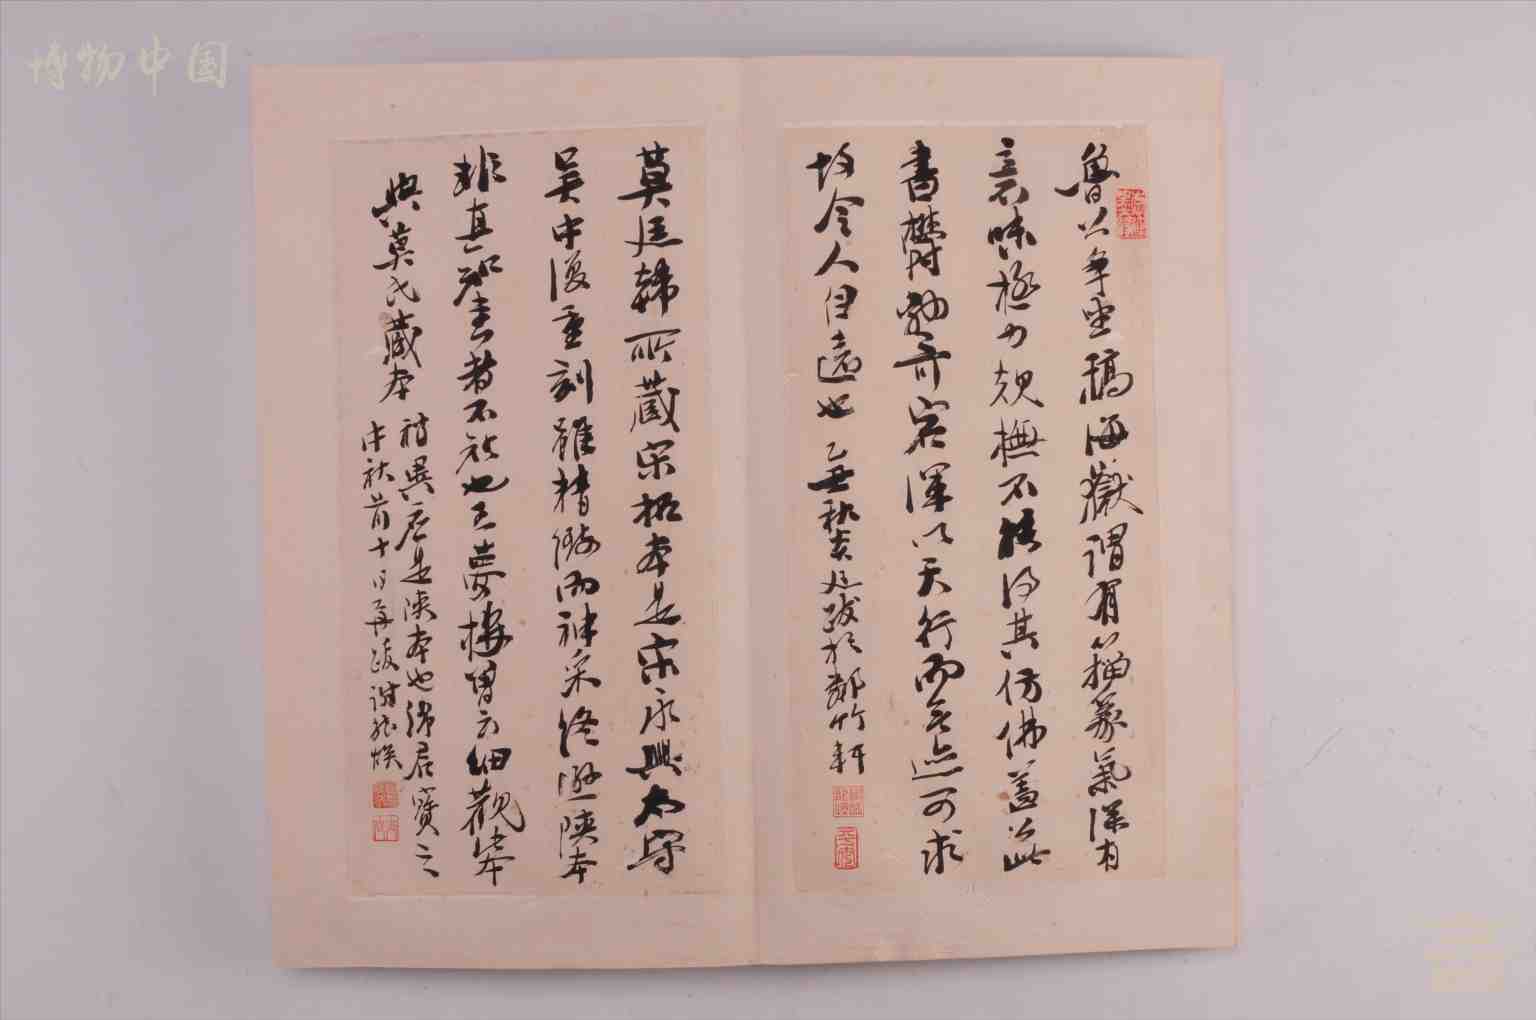 博物中国
魯公争坐稿海嶽謂有篆籀氣深有
意味極力規撫不能得其仿佛蓋此
書鬱勃奇宕渾以天行而無迹可求
故令人自遠也 乙丑秋 廷跋於 竹軒
莫廷韓所藏宋拓本是宋永興太守
吳中復重刻雖精緻而神采終遜陝本
非真知書者不能也王夢樓曾云細觀此本
與莫氏藏本
稍異應是陝本也 君寶之
中秋前十日再跋